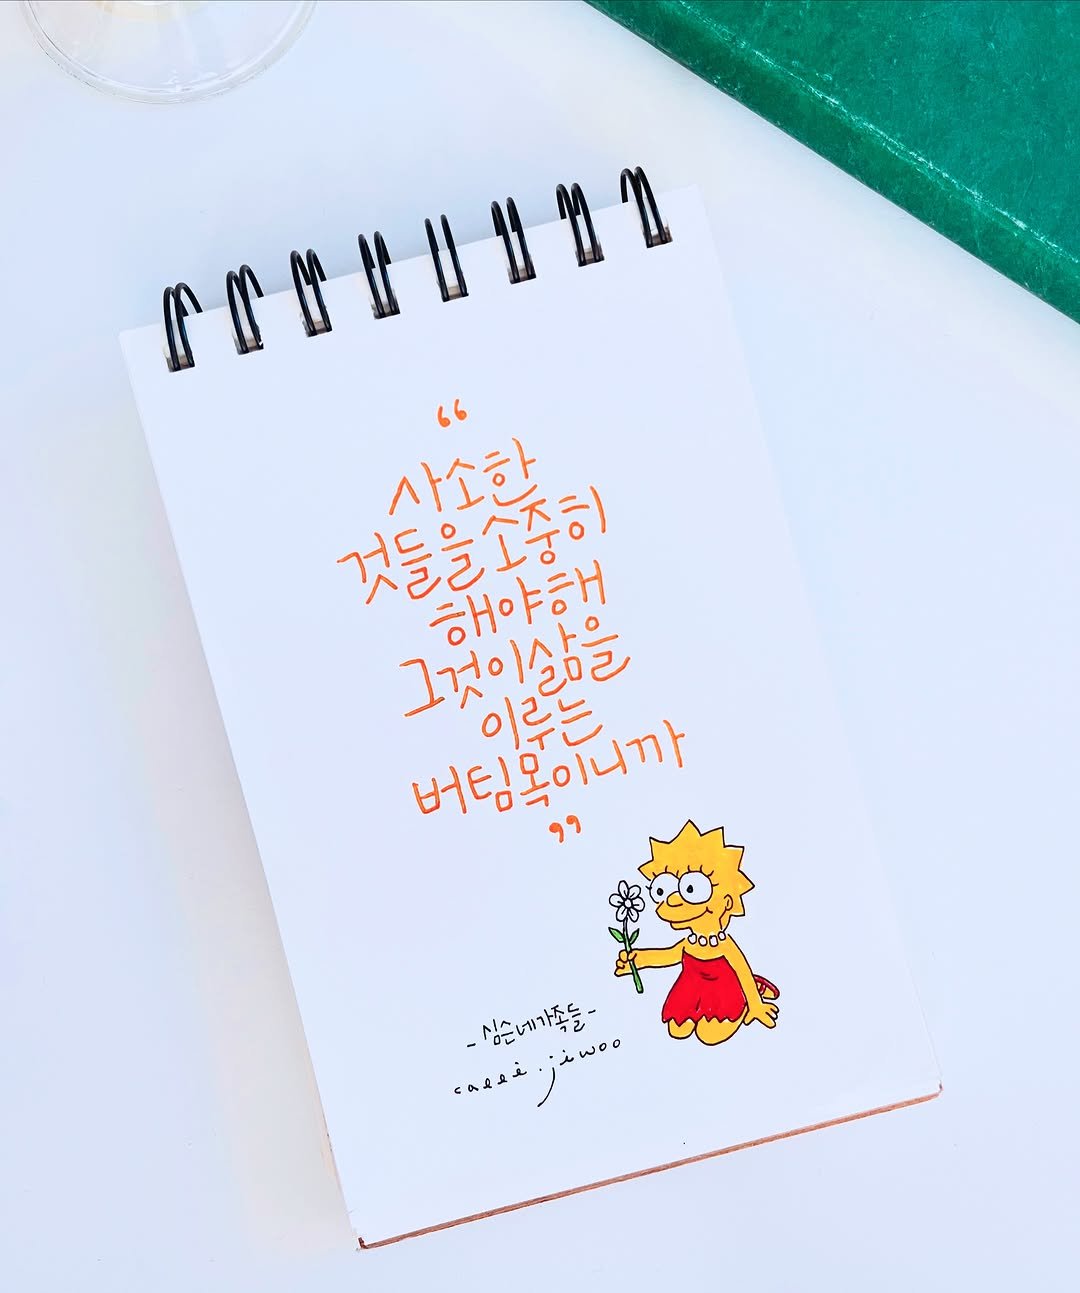 “
사소한
것들을 소중히
해야 해
그것이 삶을
이루는
버팀목이니까
”
- 심슨네 가족들 -
calli.jiwoo